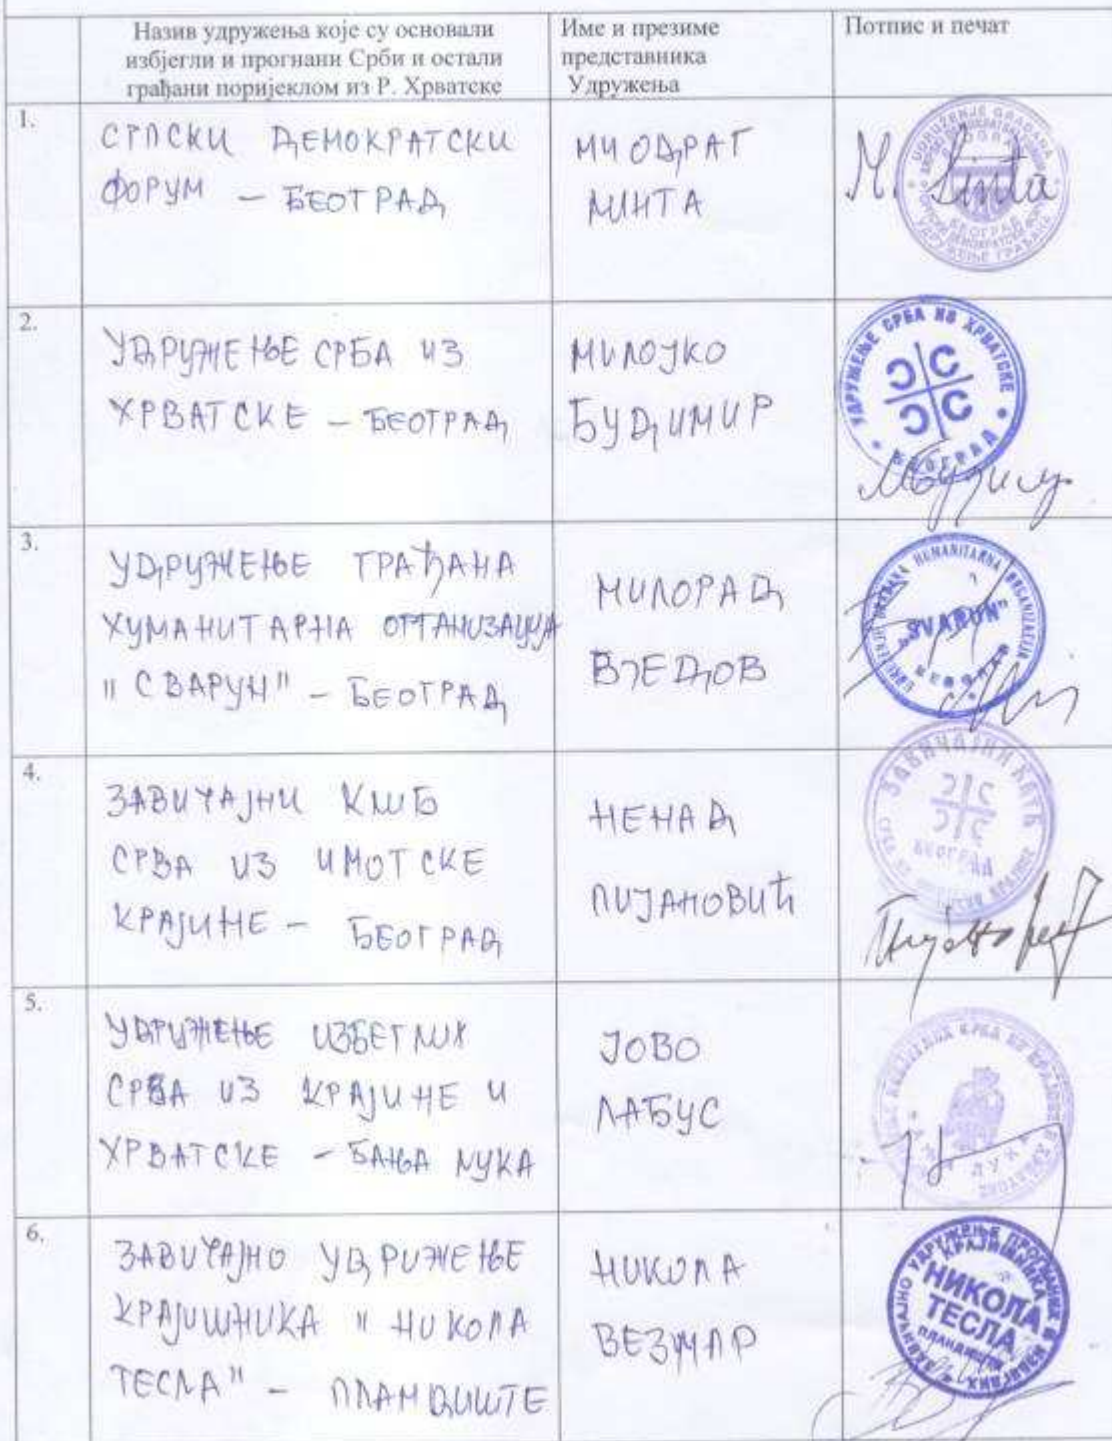 Назив удружења које су основали
избјегли и прогнани Срби и остали
грађани поријеклом из Р. Хрватске
Име и презиме
представника
Удружења
Потпис и печат
1.
СРПСКИ ДЕМОКРАТСКИ
ФОРУМ – БЕОГРАД
МИОДРАГ
ЛИНТА
M. Linta
2.
УДРУЖЕЊЕ СРБА ИЗ
ХРВАТСКЕ – БЕОГРАД
МИЛОЈКО
БУДИМИР
УДРУЖЕЊЕ СРБА ИЗ ХРВАТСКЕ
БЕОГРАД
3.
УДРУЖЕЊЕ ГРАЂАНА
ХУМАНИТАРНА ОРГАНИЗАЦИЈА
"СВАРУН" – БЕОГРАД
МИЛОРАД
ВЈЕДОВ
HUMANITARNA ORGANIZACIJA
"SVARUN"
BEOGRAD
4.
ЗАВИЧАЈНИ КЛУБ
СРБА ИЗ ИМОТСКЕ
КРАЈИНЕ – БЕОГРАД
НЕНАД
ПИЈАНОВИЋ
ЗАВИЧАЈНИ КЛУБ
БЕОГРАД
5.
УДРУЖЕЊЕ ИЗБЕГЛИХ
СРБА ИЗ КРАЈИНЕ И
ХРВАТСКЕ – БАЊА ЛУКА
ЈОВО
ЛАБУС
ЛУКА
6.
ЗАВИЧАЈНО УДРУЖЕЊЕ
КРАЈИШНИКА "НИКОЛА
ТЕСЛА" – ПЛАНДИШТЕ
НИКОЛА
ВЕЗМАР
НИКОЛА
ТЕСЛА
ПЛАНДИШТЕ